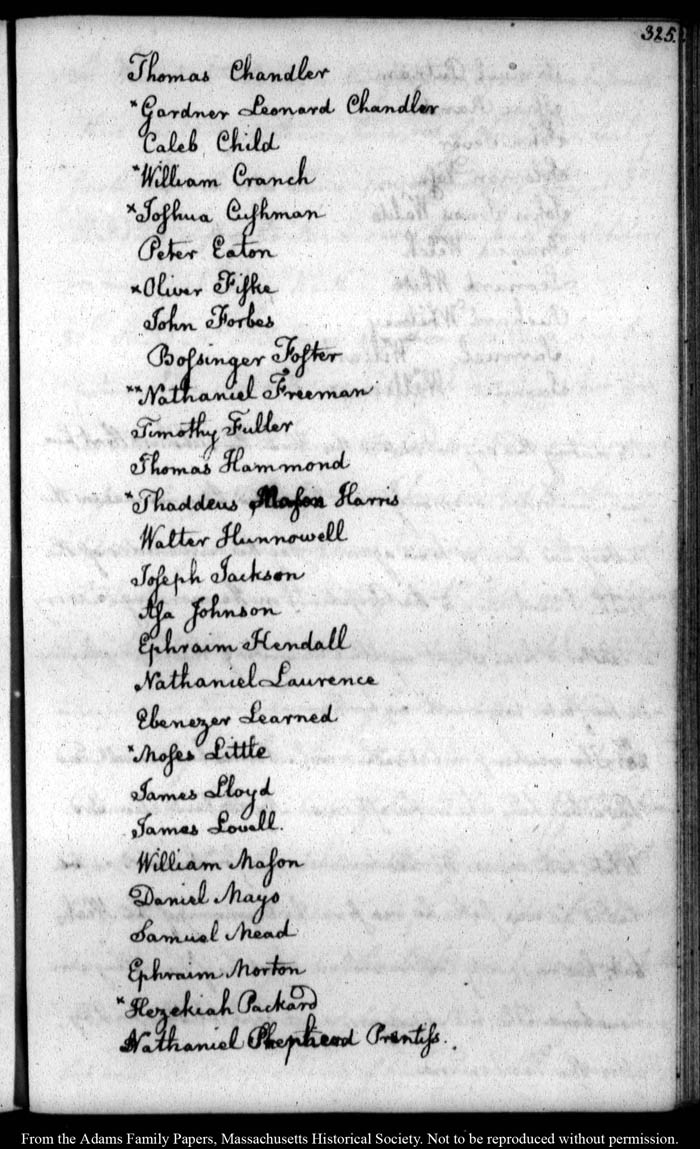 325.
Thomas Chandler
*Gardner Leonard Chandler
Caleb Child
*William Cranch
*Joſhua Cuſhman
Peter Eaton
*Oliver Fiſke
John Forbes
Boſsinger Foſter
**Nathaniel Freeman
Timothy Fuller
Thomas Hammond
*Thaddeus Maſon Harris
Walter Hunnowell
Joſeph Jackson
Aſa Johnson
Ephraim Kendall
Nathaniel Laurence
Ebenezer Learned
*Moſes Little
James Lloyd
James Lovell.
William Maſon
Daniel Mayo
Samuel Mead
Ephraim Morton
*Hezekiah Packard
Nathaniel Shepherd Prentiſs.
From the Adams Family Papers, Massachusetts Historical Society. Not to be reproduced without permission.